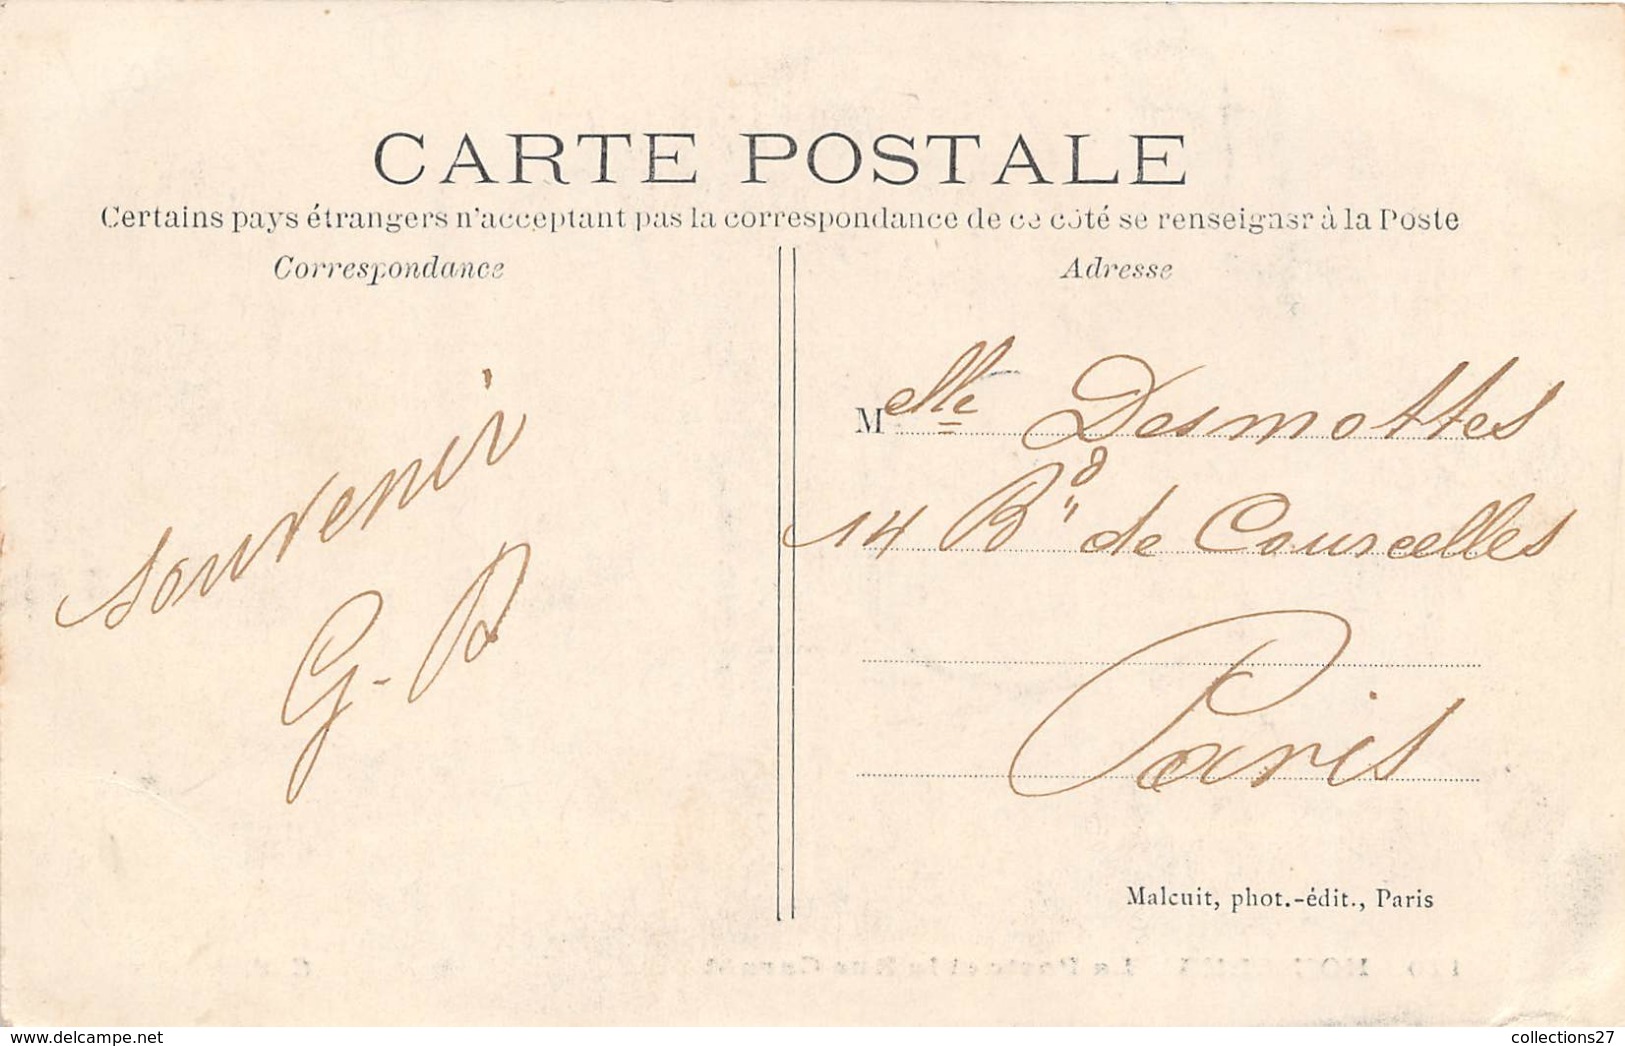 CARTE POSTALE
Certains pays étrangers n'acceptant pas la correspondance de ce côté se renseignsr à la Poste
Correspondance
Adresse
souvenir
G-D
Melle Desmottes
14 Bd de Courcelles
Paris
Malcuit, phot.-édit., Paris
La Poste et la Rue Carnot
www.delcampe.net
collections27